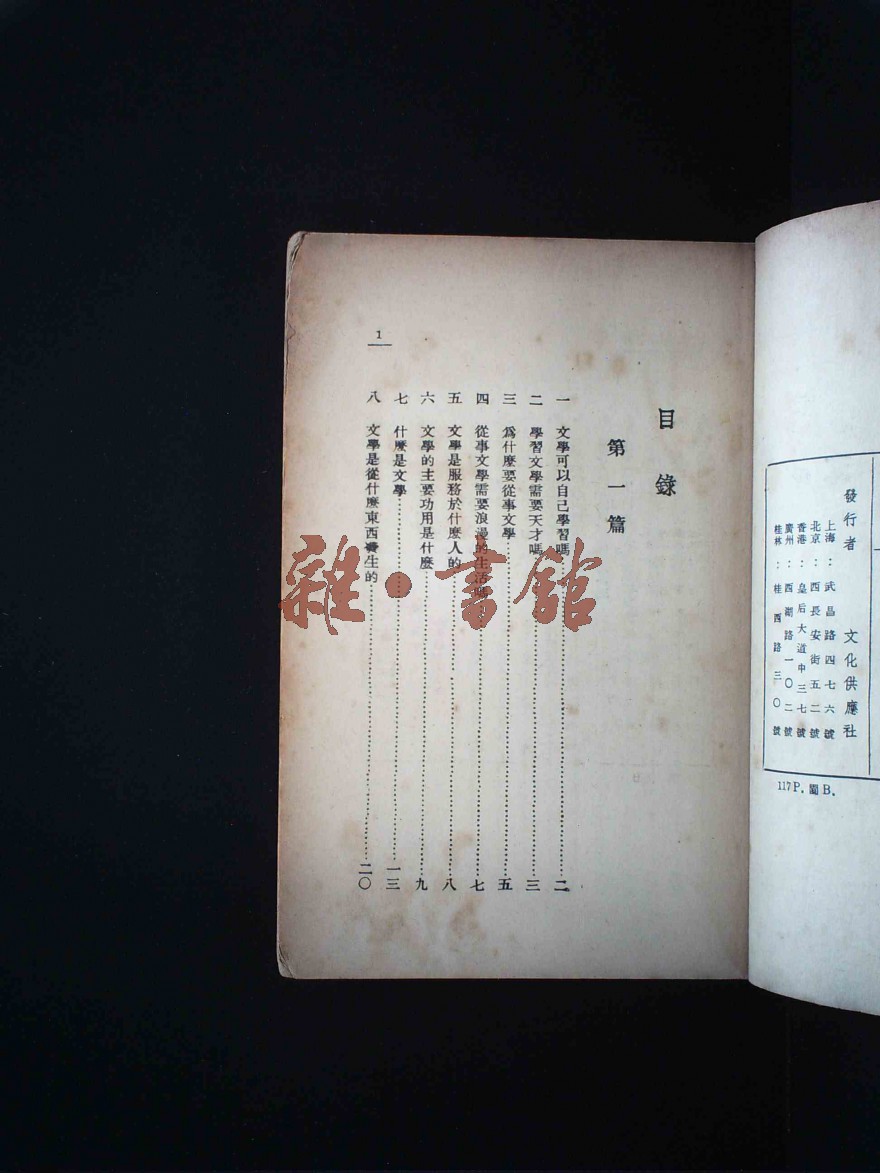 發行者 文化供應社
上海：武昌路四七六號
北京：西長安街五二號
香港：皇后大道中三七號
廣州：西湖路一〇二號
桂林：桂西路三〇號
117P. 蜀B.
目錄
第一篇
一 文學可以自己學習嗎 二
二 學習文學需要天才嗎 三
三 爲什麽要從事文學 五
四 從事文學需要浪漫的生活嗎 七
五 文學是服務於什麽人的 八
六 文學的主要功用是什麽 九
七 什麽是文學 一三
八 文學是從什麽東西產生的 二〇
1
雜·書館